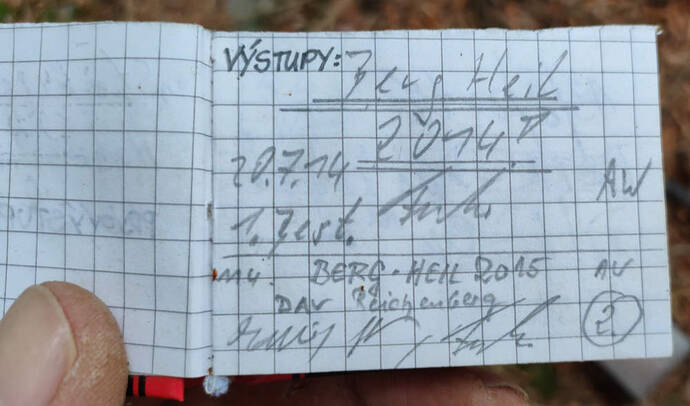 VÝSTUPY: Berg Heil
2014
20.7.14
AW
1. Best.
BERG-HEIL 2015 AW
DAV Reichenberg
2